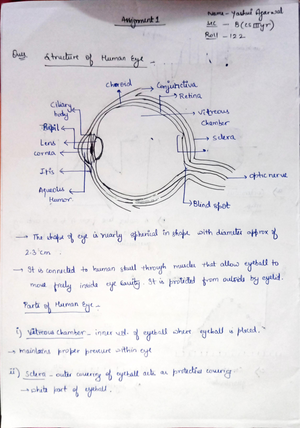 Assignment 1
Name - Yashvi Agarwal
Sec - B (CS III yr)
Roll - 122
Structure of Human Eye -
Choroid
Conjunctiva
Retina
Ciliary body
Vitreous Chamber
Pupil
Sclera
Lens
Cornea
Iris
Optic nerve
Aqueous Humor
Blind spot
→ The shape of eye is nearly spherical in shape with diameter approx of
2.3 cm
→ It is connected to human skull through muscles that allow eyeball to
move freely inside eye cavity. It is protected from outside by eyelid.
Parts of Human Eye -
i) Vitreous Chamber - inner vol. of eyeball where eyeball is placed.
→ maintains proper pressure within eye
ii) Sclera - outer covering of eyeball acts as protective covering
→ white part of eyeball.